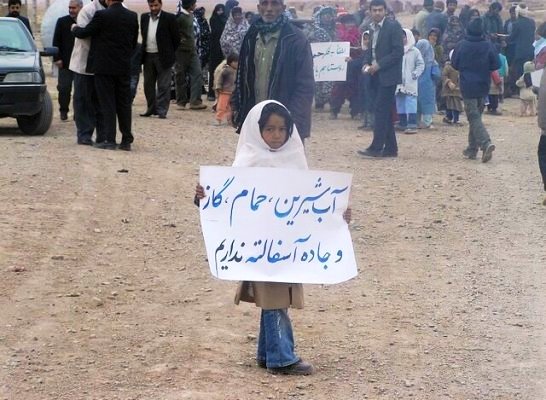 آب شیرین، حمام، گاز
و جاده آسفالته نداریم